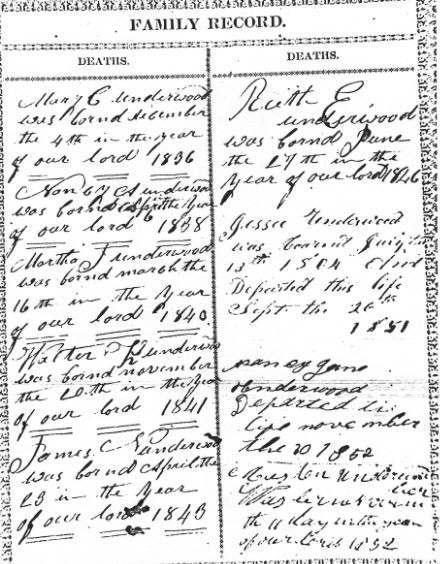 FAMILY RECORD.
DEATHS.
Mary C underwood
was bornd december
the 4th in the year
of our lord 1836
underwood
was bornd April the year
of our lord 1838
Martha J underwood
was bornd march the
16th in the year
of our lord 1840
Walter underwood
was bornd november
the 20th in the year
of our lord 1841
James N underwood
was bornd April the
23 in the year
of our lord 1843
DEATHS.
Ruth E
underwood
was bornd June
the 27th in the
year of our lord 1846
Jessee Underwood
was bornd
13th
Departed this life
Sept the 26th
1851
nancy Jane
Underwood
Departed
life november
the 1852
Underwood
was
the 11 day in the year
of our lord 1852